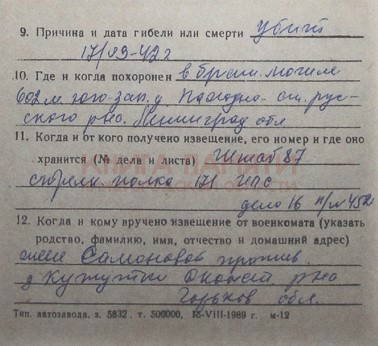 9. Причина и дата гибели или смерти убит
17/09-42г
10. Где и когда похоронен в брат. могиле
602 м юго-зап. д.
ского р-на. Ленинград обл
11. Когда и от кого получено извещение, его номер и где оно
хранится (№ дела и листа) Штаб 87
стрелк. полка
дело 16
12. Когда и кому вручено извещение от военкомата (указать
родство, фамилию, имя, отчество и домашний адрес)
жене Самоновой прожив.
д. Кужутки р-на
Горьков обл.
Тип. автозавода. з. 5832. т. 500000, 18-VIII-1989 г. м-12
КНИГА ПАМЯТИ